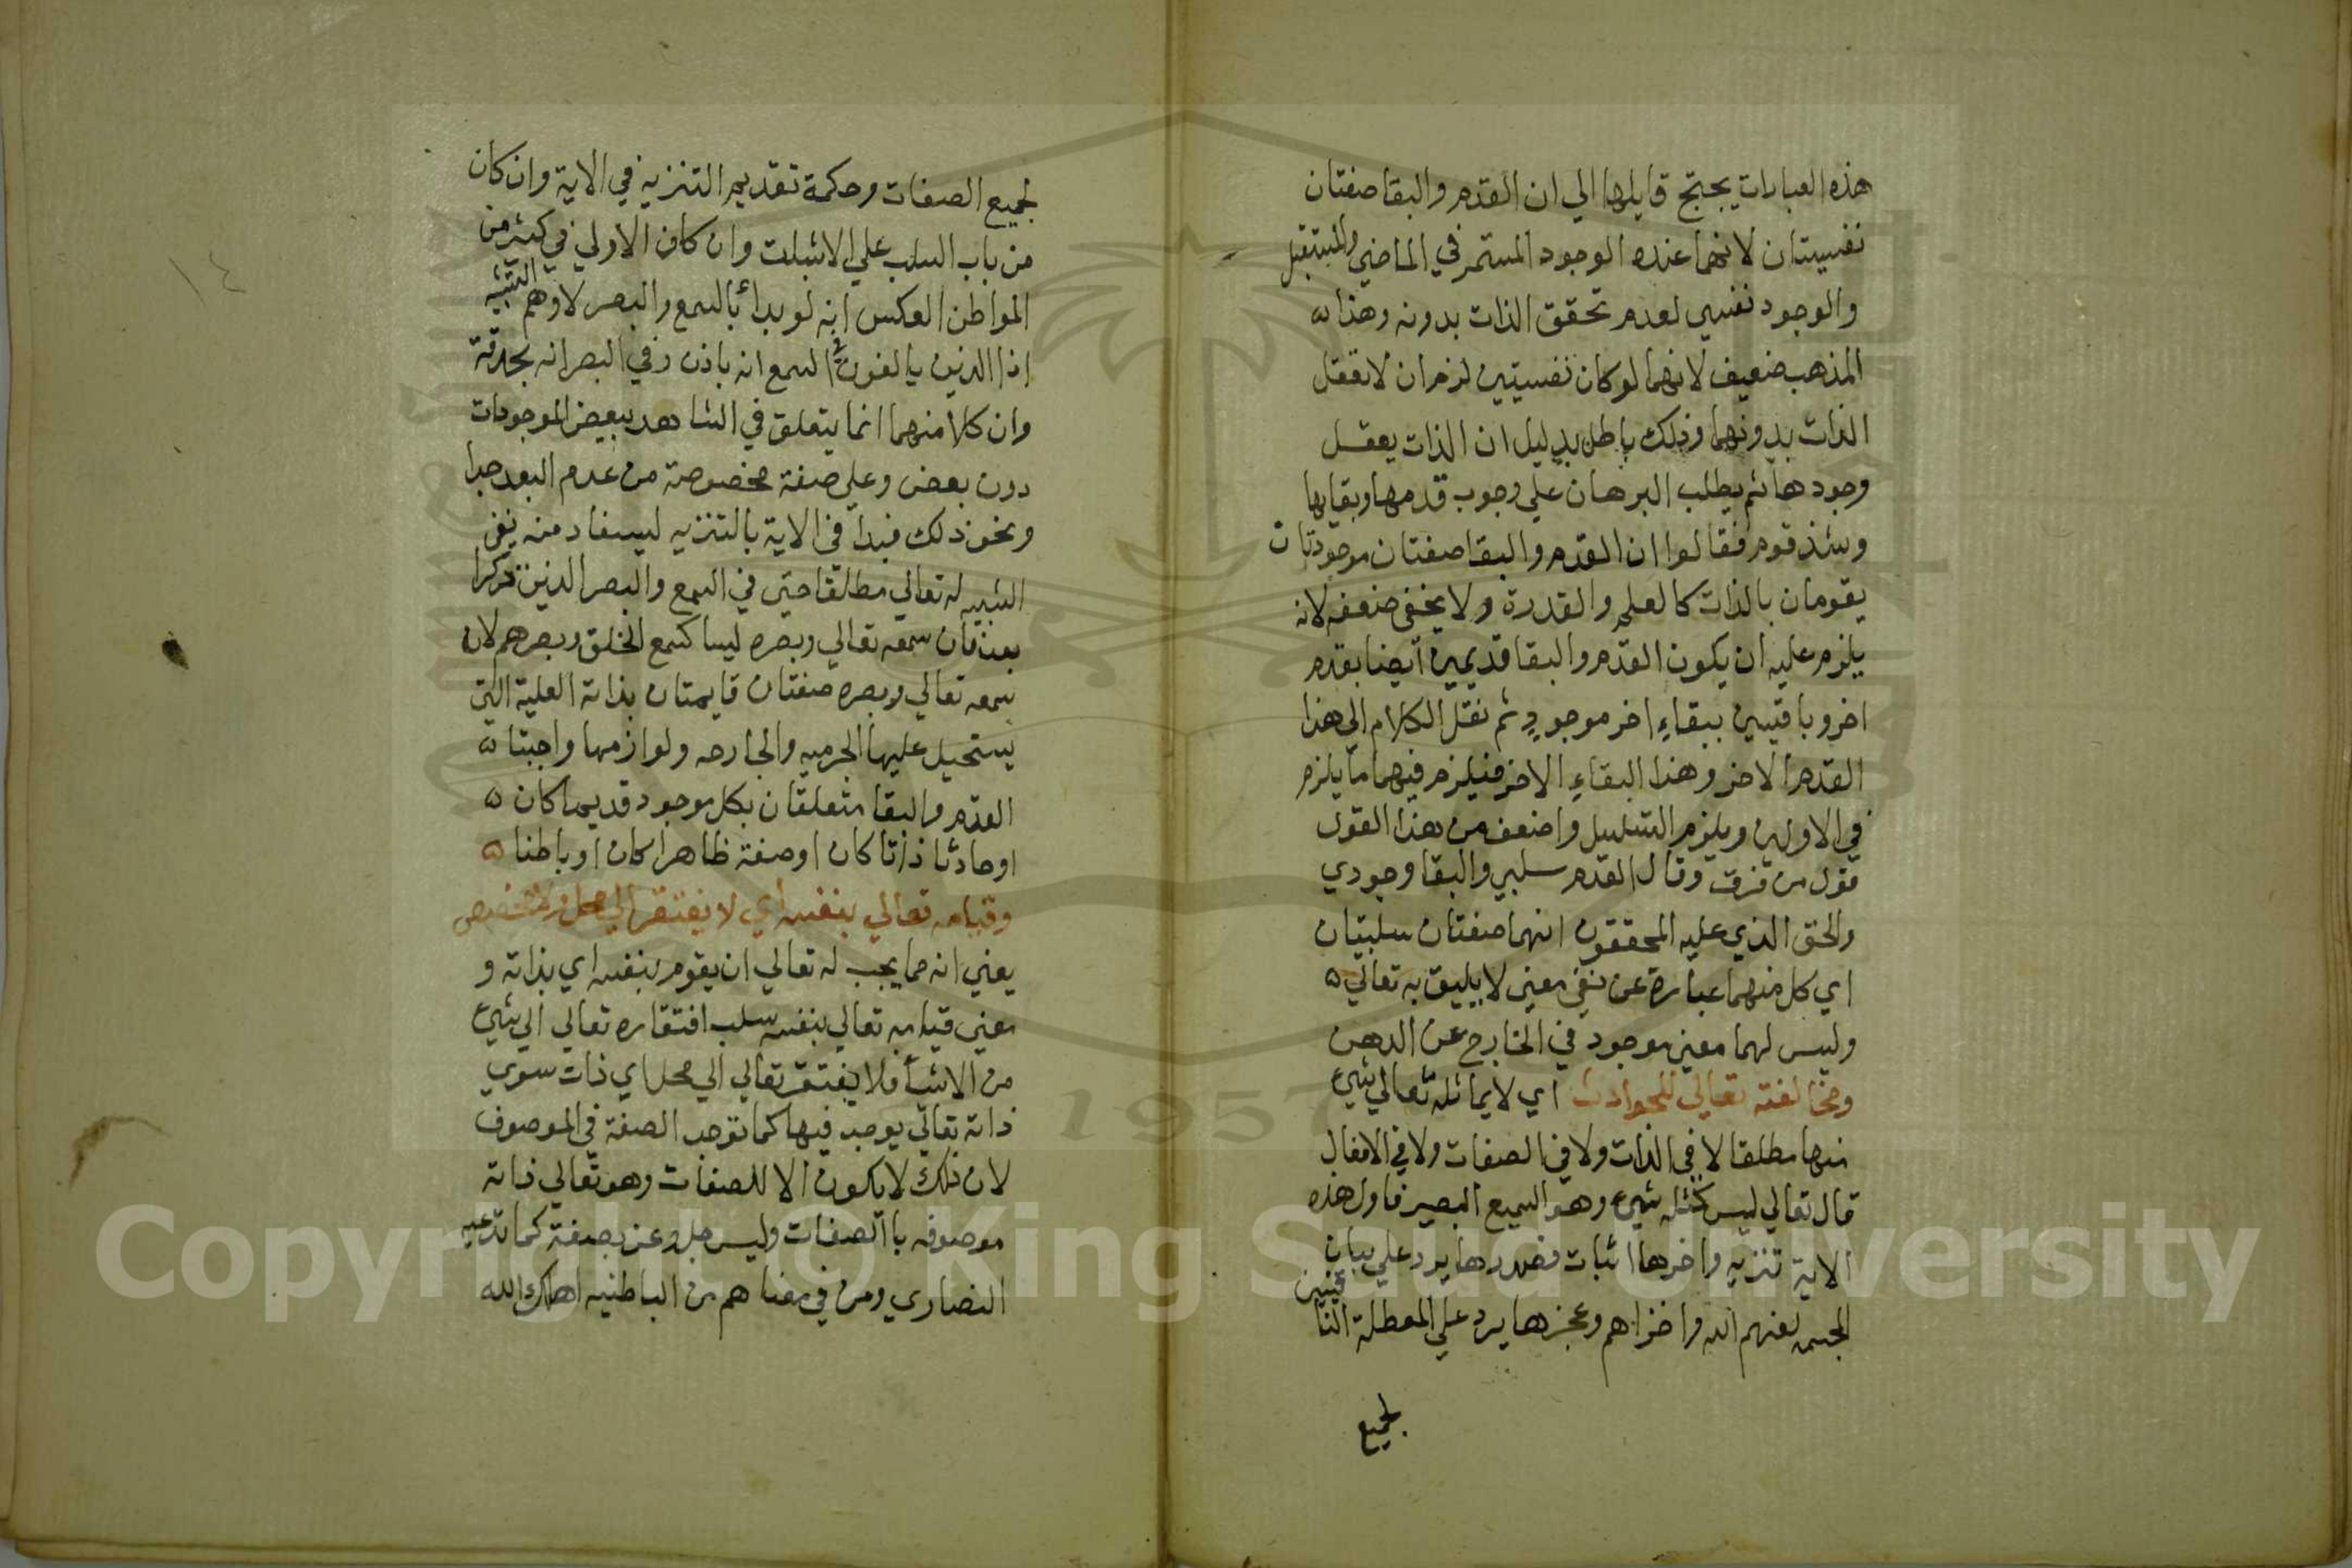 هذه العبارات يجتج قايلها الي ان القدم والبقا صفتان
نفسيتان لانهما عنده الوجود المستمر في الماضي والمستقبل
والوجود نفسي لعدم تحقق الذات بدونه وهذا
المذهب ضعيف لانهما لو كان نفسيتين لزم ان لا تعقل
الذات بدونهما وذلك باطل بدليل ان الذات يعقل
وجودها ثم يطلب البرهان علي وجوب قدمها وبقايها
وشذ قوم فقالوا ان القدم والبقا صفتان موجودتان
يقومان بالذات كالعلم والقدرة ولا يخفي ضعفه لانه
يلزم عليه ان يكون القدم والبقا قديمين ايضا بقدم
اخر وباقيين ببقاءِ اخر موجودٍ ثم نقل الكلام الي هذا
القدم الاخر وهذا البقاءِ الاخر فيلزم فيهما ما يلزم
في الاولين ويلزم التسلسل واضعف من هذا القول
قول من فرق وقال القدم سلبي والبقا وجودي
والحق الذي عليه المحققون انهما صفتان سلبيتان
اي كل منهما عبارة عن نفي معني لا يليق به تعالي
وليس لهما معني موجود في الخارج عن الذهن
ومخالفته تعالي للحوادث اي لا يماثله تعالي شيء
منها مطلقا لا في الذات ولا في الصفات ولا في الافعال
قال تعالي ليس كمثله شيء وهو السميع البصير فاول هذه
الاية تنزيه واخرها اثبات فصدرها يرد علي
المجسمه لعنهم الله واخزاهم وعجزها يرد علي المعطلة النافيين
لجميع
لجميع الصفات وحكمة تقديم التنزيه في الاية وان كان
من باب السلب علي الاثبات وان كان الاولي في كثير من
المواطن العكس انه لو بدأ بالسمع والبصر لاوهم التشبيه
اذا الذين يالفون في السمع انه باذن وفي البصر انه بحدقة
وان كلا منهما انما يتعلق في الشاهد ببعض الموجودات
دون بعض وعلي صفة مخصوصة من عدم البعد جدا
ونحو ذلك فبدا في الاية بالتنزيه ليستفاد منه نفي
التشبيه له تعالي مطلقا حتي في السمع والبصر الذين ذكرا
بعد فان سمعه تعالي وبصره ليسا كسمع الخلق وبصرهم لان
سمعه تعالي وبصره صفتان قايمتان بذاته العلية التي
يستحيل عليها الجرميه والجارحه ولوازمها واجبتا
القدم والبقا متعلقان بكل موجود قديما كان
او حادثا ذاتا كان او صفة ظاهرا كان او باطنا
وقيامه تعالي بنفسه اي لا يفتقر الي محل ولا مخصص
يعني انه مما يجب له تعالي ان يقوم بنفسه اي بذاته و
معني قيامه تعالي بنفسه سلب افتقاره تعالي الي شيء
من الاشيأ فلا يفتقر تعالي الي محل اي ذات سوي
ذاته تعالي يوجد فيها كما توجد الصفة في الموصوف
لان ذلك لا يكون الا للصفات وهو تعالي ذاته
موصوفه بالصفات وليس جل وعز بصفة كما تدعيه
النصاري ومن في معناهم من الباطنيه اهلك الله
١٤
1957
Copyright © King Saud University